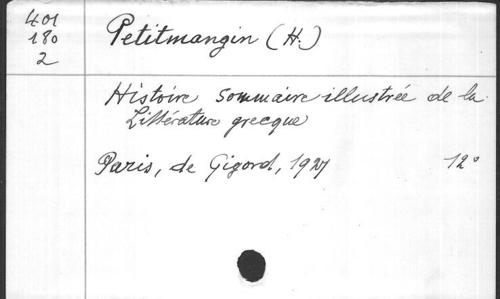 401
180
2
Petitmangin (H.)
Histoire sommaire illustrée de la
Littérature grecque
Paris, de Gigord, 1927 12°